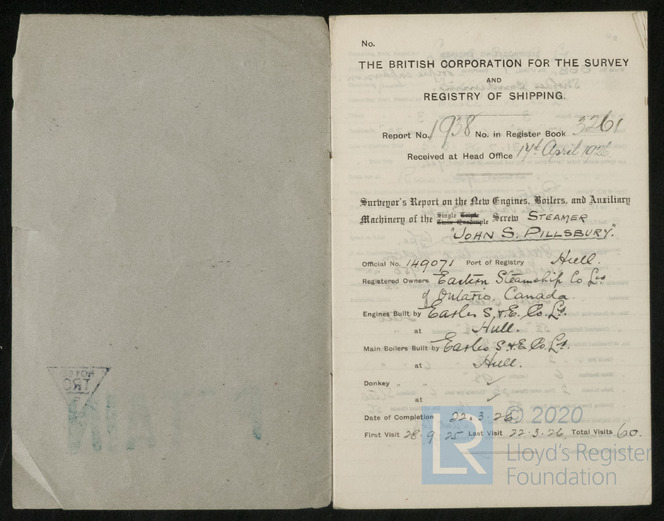 No.
THE BRITISH CORPORATION FOR THE SURVEY
AND
REGISTRY OF SHIPPING.
Report No. 1938 No. in Register Book 3261
Received at Head Office 17th April 1926
Surveyor's Report on the New Engines, Boilers, and Auxiliary
Machinery of the Single Triple Twin Quadruple Screw STEAMER
"JOHN S. PILLSBURY".
Official No. 149071 Port of Registry Hull.
Registered Owners Eastern Steamship Co Ld
of Ontario, Canada
Engines Built by Earles S. & E. Co. Ld.
at Hull.
Main Boilers Built by Earles S & E Co. Ld.
at Hull.
Donkey "
at
Date of Completion 22.3.26
First Visit 28.9.25 Last Visit 22.3.26 Total Visits 60.
LR © 2020
Lloyd's Register
Foundation